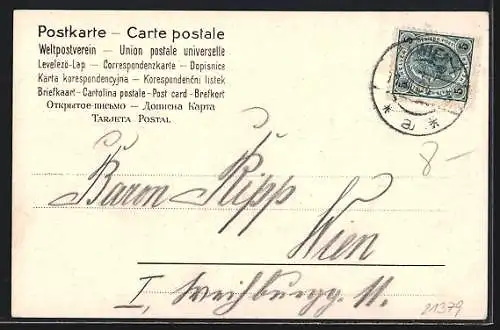 Postkarte – Carte postale
Weltpostverein – Union postale universelle
Levelező-Lap – Correspondenzkarte – Dopisnice
Karta korespondencyjna – Korespondenční lístek
Briefkaart – Cartolina postale – Post card – Brefkort
Открытое письмо – Дописна Карта
Tarjeta Postal
5 5
5 5
* a *
8-
Baron Ripp
Wien
I, Weihburgg. 11.
21379